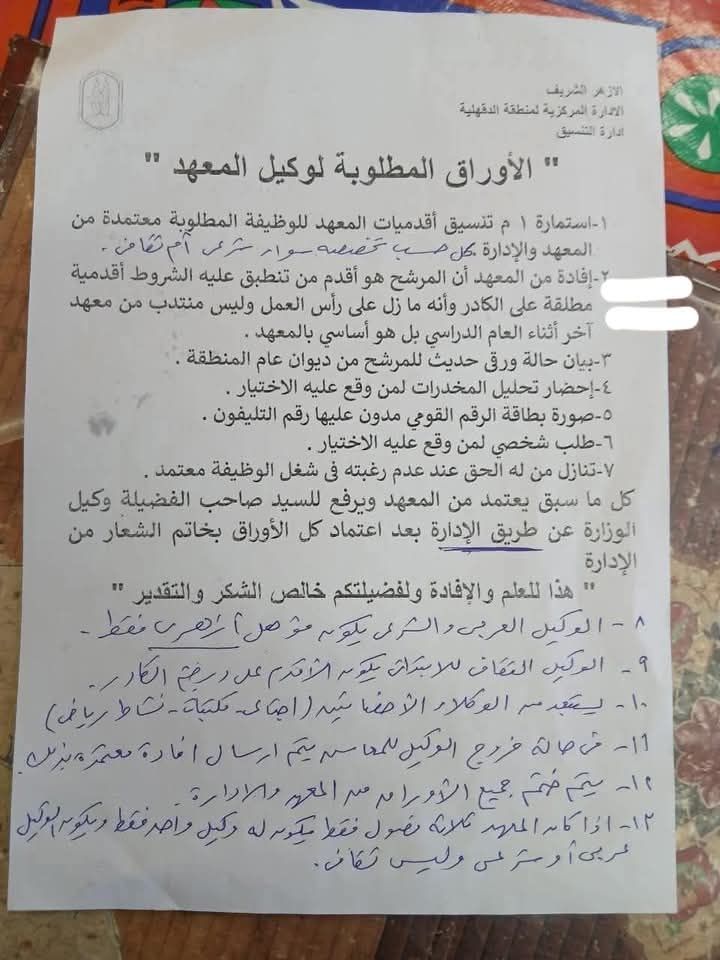 الازهر الشريف
الادارة المركزية لمنطقة الدقهلية
ادارة التنسيق
" الأوراق المطلوبة لوكيل المعهد "
١-استمارة ١ م تنسيق أقدميات المعهد للوظيفة المطلوبة معتمدة من
المعهد والإدارة . كل حسب تخصصه سواء شرعى أم ثقافى .
٢-إفادة من المعهد أن المرشح هو أقدم من تنطبق عليه الشروط أقدمية
مطلقة على الكادر وأنه ما زل على رأس العمل وليس منتدب من معهد
آخر أثناء العام الدراسي بل هو أساسي بالمعهد .
٣-بيان حالة ورقى حديث للمرشح من ديوان عام المنطقة .
٤-إحضار تحليل المخدرات لمن وقع عليه الاختيار .
٥-صورة بطاقة الرقم القومي مدون عليها رقم التليفون .
٦-طلب شخصي لمن وقع عليه الاختيار .
٧-تنازل من له الحق عند عدم رغبته فى شغل الوظيفة معتمد .
كل ما سبق يعتمد من المعهد ويرفع للسيد صاحب الفضيلة وكيل
الوزارة عن طريق الإدارة بعد اعتماد كل الأوراق بخاتم الشعار من
الإدارة
" هذا للعلم والإفادة ولفضيلتكم خالص الشكر والتقدير "
٨- الوكيل العربى والشرعى يكون مؤهل أزهرى فقط .
٩- الوكيل الثقافى للابتدائى يكون الأقدم على درجة الكادر .
١٠- يستبعد من الوكلاء الأخصائيين (اجتماعى - مكتبات - نشاط رياضى)
١١- فى حالة خروج الوكيل للمعاش يتم ارسال افادة معتمدة بذلك .
١٢- يتم ختم جميع الأوراق من المعهد والادارة .
١٣- اذا كان المعهد ثلاثة فصول فقط يكون له وكيل واحد فقط ويكون الوكيل
عربى أو شرعى وليس ثقافى .